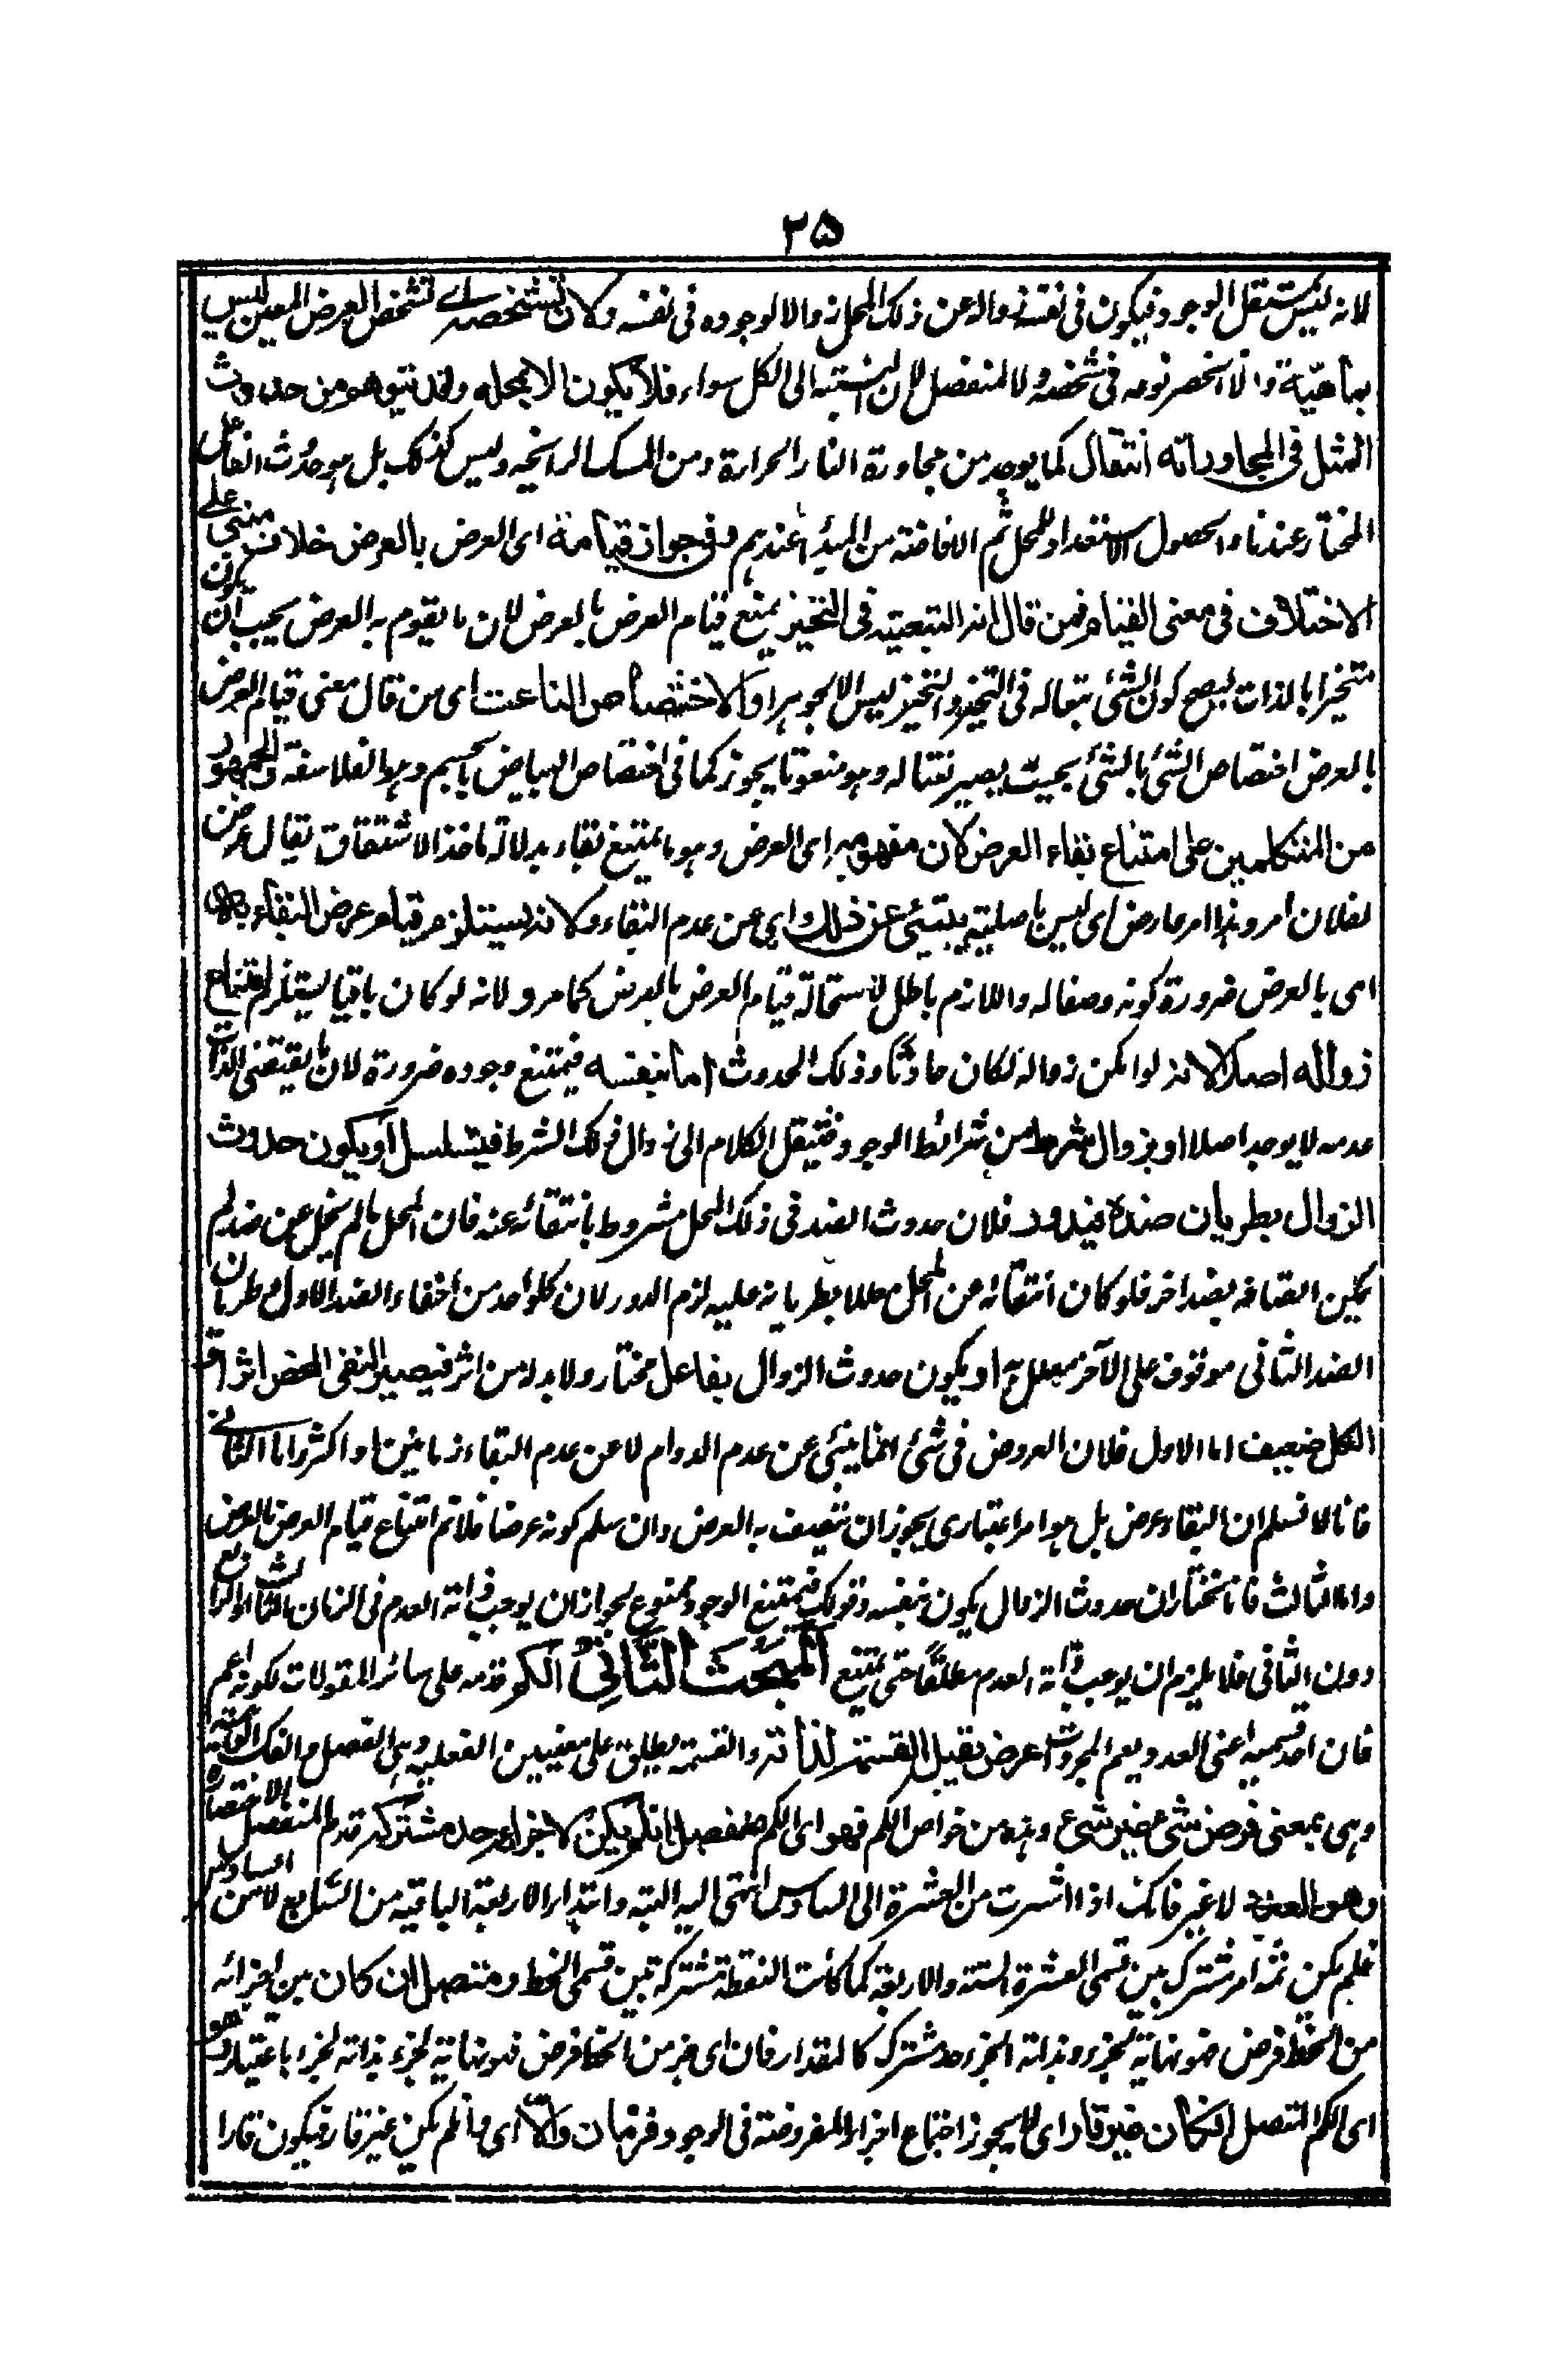 ٢٥
لانه ليس مستقل الوجود فيكون في نفسه زواله عن ذلك المحل زوالا لوجوده في نفسه ولان تشخصه اى تشخص العرض المعين ليس
بماهيّة والا انحصر نوعه في شخصه ولا لمنفصل لان نسبته الى الكل سواء فلا يكون الا بمحله وقد يتوهم من حدوث
المثل في المجاور انه انتقال كما يوجد من مجاورة النار الحرارة ومن المسك الرائحة وليس كذلك بل هو حدوث الفاعل
المختار عندنا والحصول الاستعداد للمحل ثم الافاضة من المبدأ عندهم وفي جواز قيامه اى العرض بالعرض خلاف مبنى على
الاختلاف في معنى القيام فمن قال انه التبعية في التحيز يمنع قيام العرض بالعرض لان ما يقوم به العرض يجب ان يكون
متحيزا بالذات ليصح كون الشئ تبعا له في التحيز والمتحيز ليس الا الجوهر او الاختصاص الناعت اى من قال معنى قيام العرض
بالعرض اختصاص الشئ بالشئ بحيث يصير نعتا له وهو منعوتا يجوز كما في اختصاص البياض بالجسم وهو الفلاسفة والجمهور
من المتكلمين على امتناع بقاء العرض لان مفهومه اى العرض وهو ما يمتنع بقاءه بدلالة ماخذ الاشتقاق يقال عرض
لفلان امر وهذا امر عارض اى ليس باصلية ينبئ عن ذلك اى عن عدم البقاء ولانه يستلزم قيام عرض البقاء به
اى بالعرض ضرورة كونه وصفا له واللازم باطل لاستحالة قيام العرض بالعرض كما مر ولانه لو كان باقيا يستلزم امتناع
زواله اصلا لانه لو امكن زواله لكان حادثا وذلك الحدوث اما بنفسه فيمتنع وجوده ضرورة لان ما يقتضى الذات
عدمه لا يوجد اصلا او بزوال شرط من شرائط الوجود فينقل الكلام الى زوال ذلك الشرط فيتسلسل او يكون حدوث
الزوال بطريان ضده فيدور فلان حدوث الضد في ذلك المحل مشروط بانتفائه عنه فان المحل ما لم يخل عن ضد لم
يمكن اتصافه بضد اخر فلو كان انتفائه عن المحل معللا بطريانه عليه لزم الدور لان كلواحد من انتفاء الضد الاول وطريان
الضد الثاني موقوف على الآخر معلل به او يكون حدوث الزوال بفاعل مختار ولا بد له من اثر فيصير النفى المحض اثرا و
الكل ضعيف اما الاول فلان العروض في شئ انما ينبئ عن عدم الدوام لا عن عدم البقاء زمانين او اكثر واما الثاني
فانا لا نسلم ان البقاء عرض بل هو امر اعتبارى يجوز ان يتصف به العرض وان سلم كونه عرضا فلا تم امتناع قيام العرض بالعرض
واما الثالث فانا نختار ان حدوث الزوال يكون بنفسه وقولك فيمتنع الوجود ممنوع لجواز ان يوجب ذاته العدم في الزمان الثالث او الرابع
دون الثاني فلا يلزم ان يوجب ذاته العدم مطلقًا حتى يمتنع المبحث الثاني الكم قدمه على سائر المقولات لكونه اعم
فان احد قسميه اعنى العدد يعم المجردات عرض يقبل القسمة لذاته والقسمة يطلق على معنيين الفعلية وهى الفصل والفك والوهمية
وهى بمعنى فرض شئ غير شئ وهذه من خواص الكم فهو اى الكم منفصل ان لم يكن لاجزاءه حد مشترك قدم المنفصل لاختصاره
وهو العدد لا غير فانك اذا اشرت من العشرة الى السادس انتهى اليه الستة وابتداء الاربعة الباقية من السابع لا من السادس
فلم يكن ثمه امر مشترك بين قسمى العشرة الستة والاربعة كما كانت النقطة مشتركة بين قسمى الخط ومتصل ان كان بين اجزائه
من الخط فرض فهو نهاية لجزء وبداية لجزء حد مشترك كالمقدار فان اى جزء من الخط فرض فهو نهاية لجزء بداية لجزء باعتبار وهو
اى الكم المتصل ان كان غير قار اى لا يجوز اجتماع اجزاء المفروضة في الوجود فزمان والا اى ما لم يكن غير قار فيكون قارا